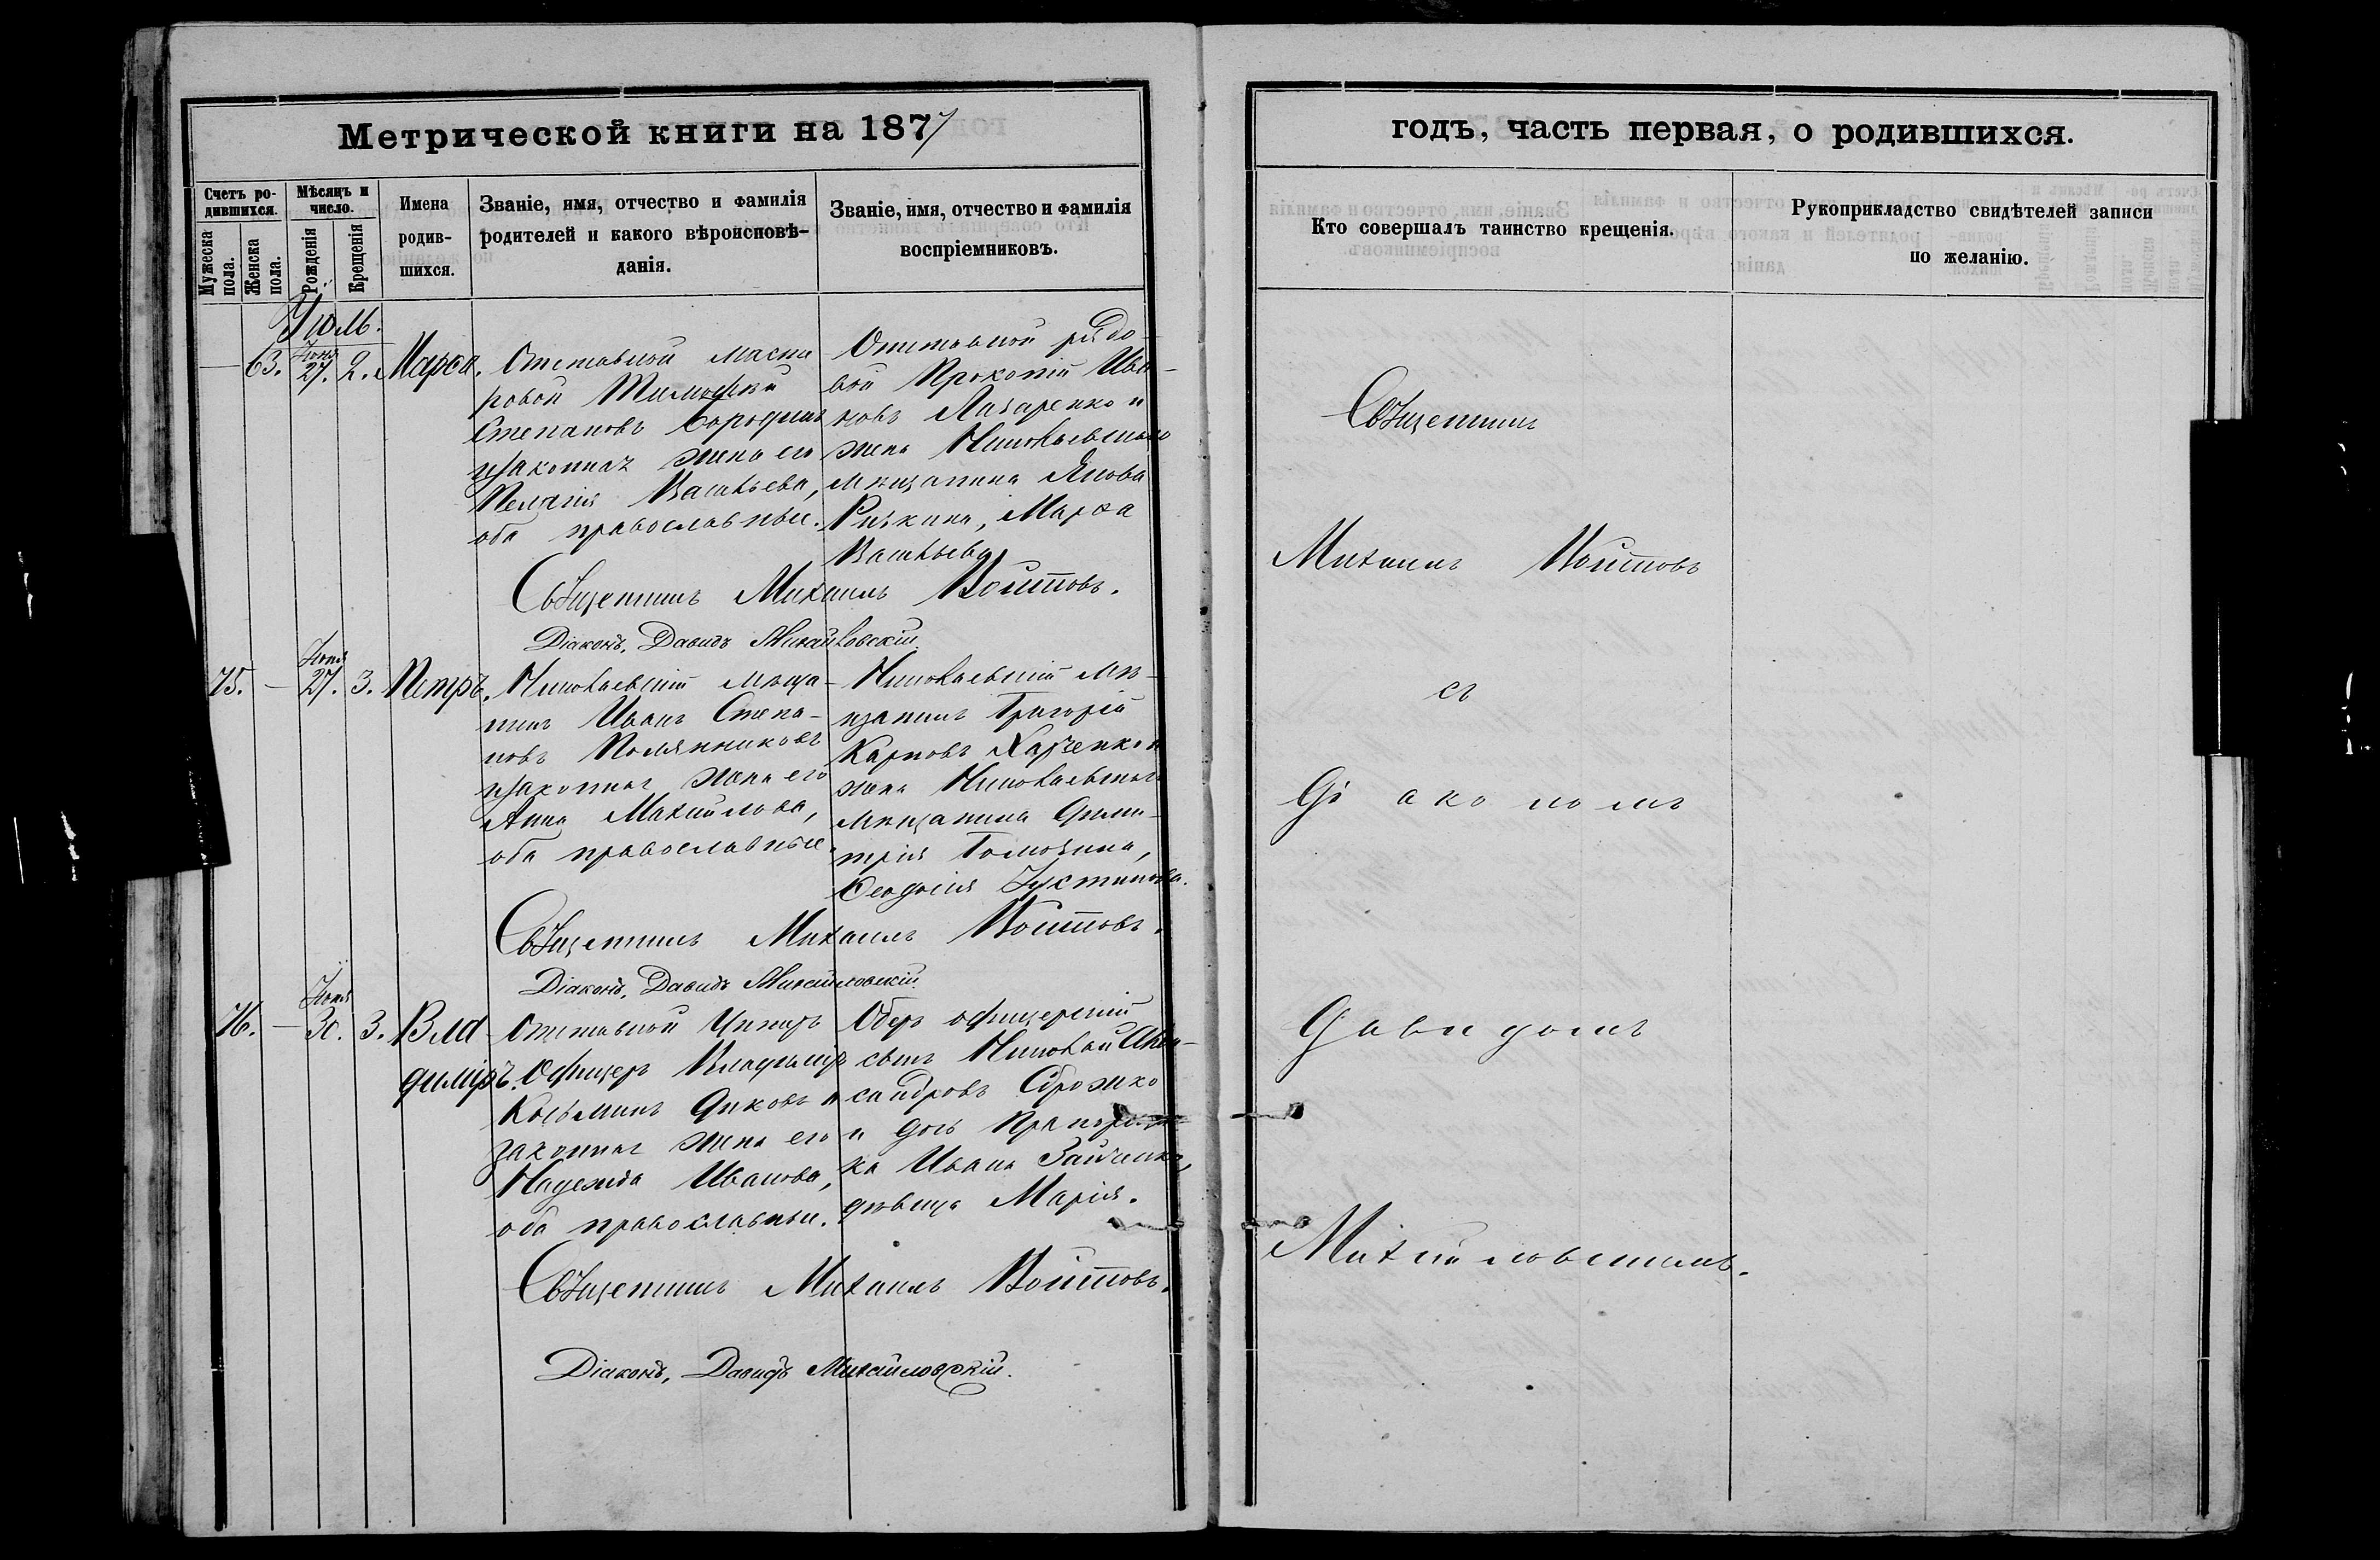 Метрической книги на 1877
Счетъ ро-
дившихся.
Мужеска
пола.
Женска
пола.
Мѣсяцъ и
число.
Рожденія
Крещенія
Имена
родив-
шихся.
Званіе, имя, отчество и фамилія
родителей и какого вѣроисповѣ-
данія.
Званіе, имя, отчество и фамилія
воспріемниковъ.
Іюль.
Іюня
63. 27. 2. Марѳа.
Отставной масте
ровой Тимофей
Степановъ Бородинъ
и законная жена его
Пелагія Васильева,
оба православные.
Отставной рядо-
вой Прокопій Ива-
новъ Лазаренко и
жена Николаевскаго
мѣщанина Якова
Марѳа
Васильева
Священникъ Михаилъ Войтовъ.
Діаконъ, Давидъ Михайловскій.
Іюня
75. — 27. 3. Петръ.
Николаевскій мѣща-
нинъ Иванъ Степа-
новъ Полянниковъ
и законная жена его
Анна Михайлова,
оба православные.
Николаевскій мѣ-
щанинъ Григорій
Карповъ и
жена Николаевскаго
мѣщанина Дими-
трія
Ѳеодосія Іустинова.
Священникъ Михаилъ Войтовъ.
Діаконъ, Давидъ Михайловскій
Іюня
76. — 30. 3. Вла-
димиръ.
Отставной Унтеръ
Офицеръ Владиміръ
Козьминъ и
законная жена его
Надежда Иванова,
оба православные.
Оберъ офицерскій
сынъ Николай Алек-
сандровъ
и дочь Прапорщи-
ка Ивана
дѣвица Марія.
Священникъ Михаилъ Войтовъ.
Діаконъ, Давидъ Михайловскій.
годъ, часть первая, о родившихся.
Кто совершалъ таинство крещенія.
Рукоприкладство свидѣтелей записи
по желанію.
Священникъ
Михаилъ Войтовъ
съ
діакономъ
Давидомъ
Михайловскимъ.